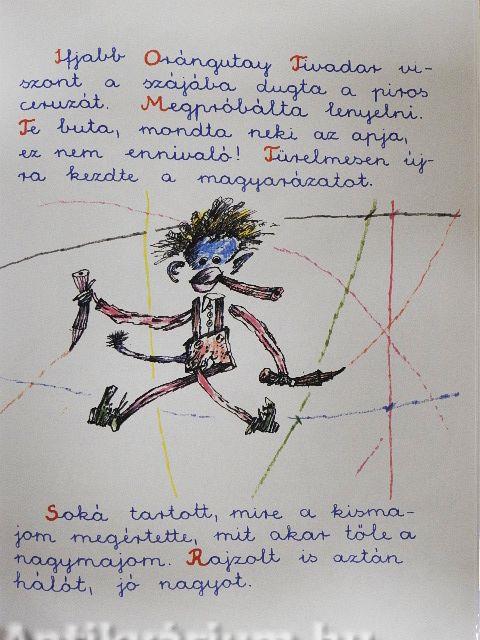 Ifjabb Orángutay Tivadar vi-
szont a szájába dugta a piros
ceruzát. Megpróbálta lenyelni.
Te buta, mondta neki az apja,
ez nem ennivaló! Türelmesen új-
ra kezdte a magyarázatot.
Soká tartott, mire a kisma-
jom megértette, mit akar tőle a
nagymajom. Rajzolt is aztán
hálót, jó nagyot.
Antikvárium.hu